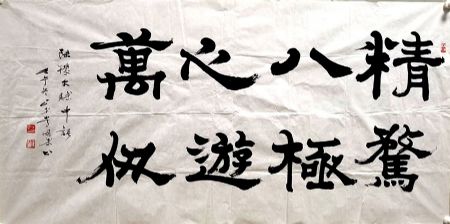 精騖
八極
心遊
萬仞
陸機文賦中語